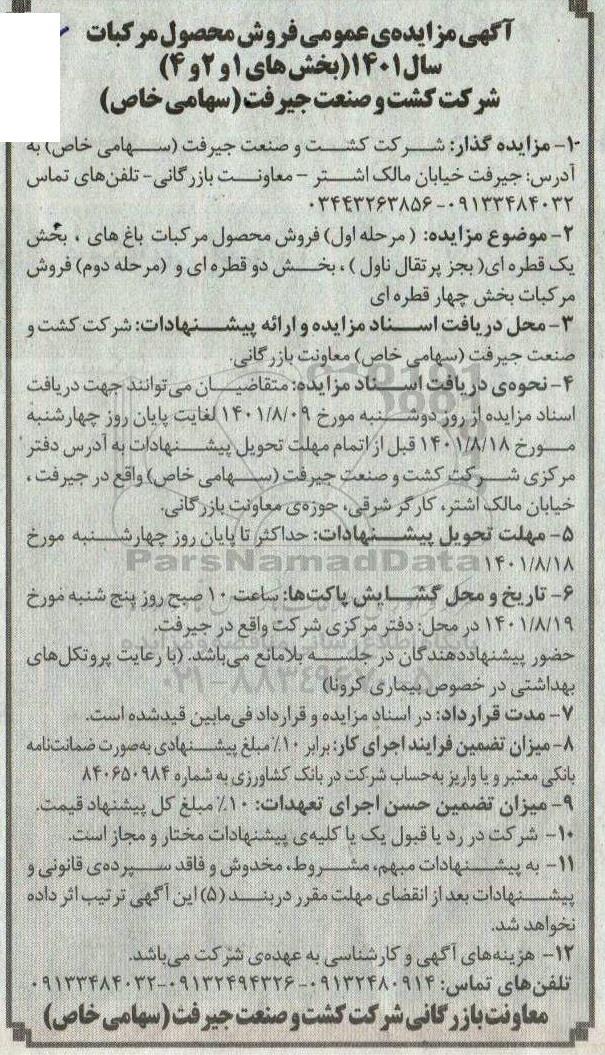 آگهی مزایده‌ی عمومی فروش محصول مرکبات
سال ۱۴۰۱ (بخش های ۱ و ۲ و ۴)
شرکت کشت و صنعت جیرفت (سهامی خاص)
۱- مزایده گذار: شرکت کشت و صنعت جیرفت (سهامی خاص) به
آدرس: جیرفت خیابان مالک اشتر – معاونت بازرگانی- تلفن‌های تماس
۰۹۱۳۳۴۸۴۰۳۲-۰۳۴۴۳۲۶۳۸۵۶
۲- موضوع مزایده: (مرحله اول) فروش محصول مرکبات باغ های ، بخش
یک قطره ای (بجز پرتقال ناول) ، بخش دو قطره ای و (مرحله دوم) فروش
مرکبات بخش چهار قطره ای
۳- محل دریافت اسناد مزایده و ارائه پیشنهادات: شرکت کشت و
صنعت جیرفت (سهامی خاص) معاونت بازرگانی.
۴- نحوه‌ی دریافت اسناد مزایده: متقاضیان می‌توانند جهت دریافت
اسناد مزایده از روز دوشنبه مورخ ۱۴۰۱/۸/۰۹ لغایت پایان روز چهارشنبه
مورخ ۱۴۰۱/۸/۱۸ قبل از اتمام مهلت تحویل پیشنهادات به آدرس دفتر
مرکزی شرکت کشت و صنعت جیرفت (سهامی خاص) واقع در جیرفت ،
خیابان مالک اشتر، کارگر شرقی، حوزه‌ی معاونت بازرگانی.
۵- مهلت تحویل پیشنهادات: حداکثر تا پایان روز چهارشنبه مورخ
۱۴۰۱/۸/۱۸
ParsNamadData
۶- تاریخ و محل گشایش پاکت‌ها: ساعت ۱۰ صبح روز پنج شنبه مورخ
۱۴۰۱/۸/۱۹ در محل: دفتر مرکزی شرکت واقع در جیرفت.
حضور پیشنهاددهندگان در جلسه بلامانع می‌باشد. (با رعایت پروتکل‌های
بهداشتی در خصوص بیماری کرونا)
۷- مدت قرارداد: در اسناد مزایده و قرارداد فی‌مابین قیدشده است.
۸- میزان تضمین فرایند اجرای کار: برابر ۱۰٪ مبلغ پیشنهادی به‌صورت ضمانت‌نامه
بانکی معتبر و یا واریز به‌حساب شرکت در بانک کشاورزی به شماره ۸۴۰۶۵۰۹۸۴
۹- میزان تضمین حسن اجرای تعهدات: ۱۰٪ مبلغ کل پیشنهاد قیمت.
۱۰- شرکت در رد یا قبول یک یا کلیه‌ی پیشنهادات مختار و مجاز است.
۱۱- به پیشنهادات مبهم، مشروط، مخدوش و فاقد سپرده‌ی قانونی و
پیشنهادات بعد از انقضای مهلت مقرر دربند (۵) این آگهی ترتیب اثر داده
نخواهد شد.
۱۲- هزینه‌های آگهی و کارشناسی به عهده‌ی شرکت می‌باشد.
تلفن‌های تماس: ۰۹۱۳۲۴۸۰۹۱۴-۰۹۱۳۲۴۹۴۳۲۶-۰۹۱۳۳۴۸۴۰۳۲
معاونت بازرگانی شرکت کشت و صنعت جیرفت (سهامی خاص)